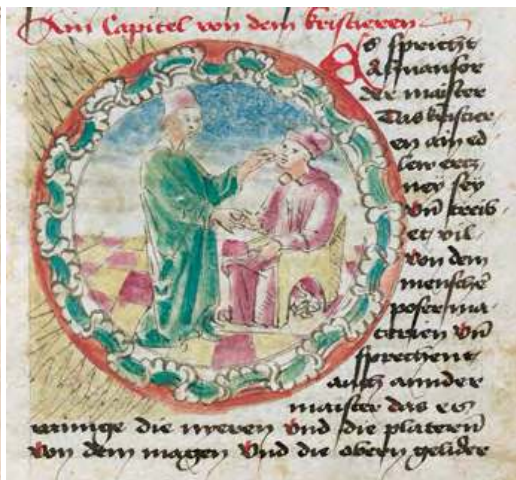 Ain Capitel von dem kristieren
Es spricht
Almansor
der maister
Das kristier
en ain ed
lew ercz
ney sey
vn̄ treib
et vil
von dem
menschē
poser ma
terien vn̄
sprechent
auch annder
maister das es
rainige die nyeren vnd die platerñ
von dem magen vnd die obern gelider